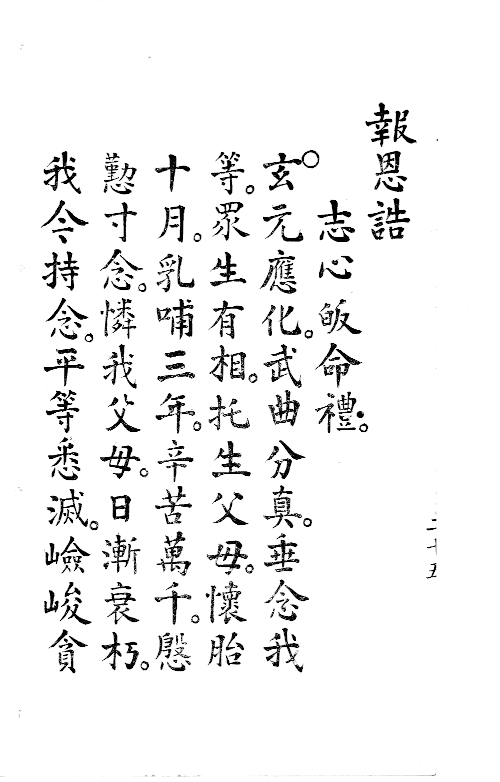 報恩誥
志心皈命禮。
玄元應化。武曲分真。垂念我
等。眾生有相。托生父母。懷胎
十月。乳哺三年。辛苦萬千。慇
懃寸念。憐我父母。日漸衰朽。
我今持念。平等悉滅。嶮峻貪
二十五